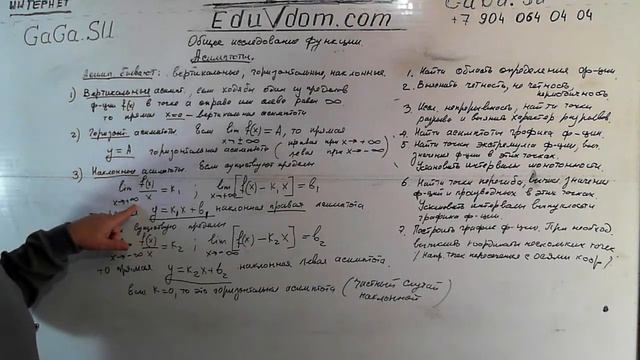 ИНТЕРНЕТ
GaGa.SU
EduVdom.com
+7 904 064 04 04
Общее исследование функции.
Асимптоты.
Асимп. бывают: вертикальные, горизонтальные, наклонные.
1) Вертикальные асимпт., если хотя бы один из пределов
ф-ции f(x) в точке a справа или слева равен ∞
то прямая x=a - вертикальная асимптота
2) Горизонт. асимптоты. Если lim f(x) = A, то прямая
x→±∞
y = A горизонтальная асимптота (правая при x→+∞)
(левая при x→-∞)
3) Наклонные асимптоты. Если существуют пределы
lim f(x)/x = k₁ ; lim [f(x) - k₁x] = b₁
x→+∞ x→+∞
y = k₁x + b₁ наклонная правая асимптота
существуют пределы
f(x)/x = k₂ ; lim [f(x) - k₂x] = b₂
x→-∞ x→-∞
то прямая y = k₂x + b₂ наклонная левая асимптота.
если k=0, то это горизонтальная асимптота (частный случай
наклонной)
1. Найти область определения ф-ции
2. Выяснить четность, не четность,
периодичность
3. Исслед. непрерывность, найти точки
разрыва и выяснить характер разрывов.
4. Найти асимптоты графика ф-ции.
5 Найти точки экстремума ф-ции, выч.
значение ф-ции в этих точках.
Установить интервалы монотонности.
6. Найти точки перегиба, вычис. значение
ф-ции и производных в этих точках.
Установить интервалы выпуклости
графика ф-ции.
7. Построить график ф-ции. При необход.
вычислить координаты нескольких точек
(Напр. точек пересечения с осями коор.)